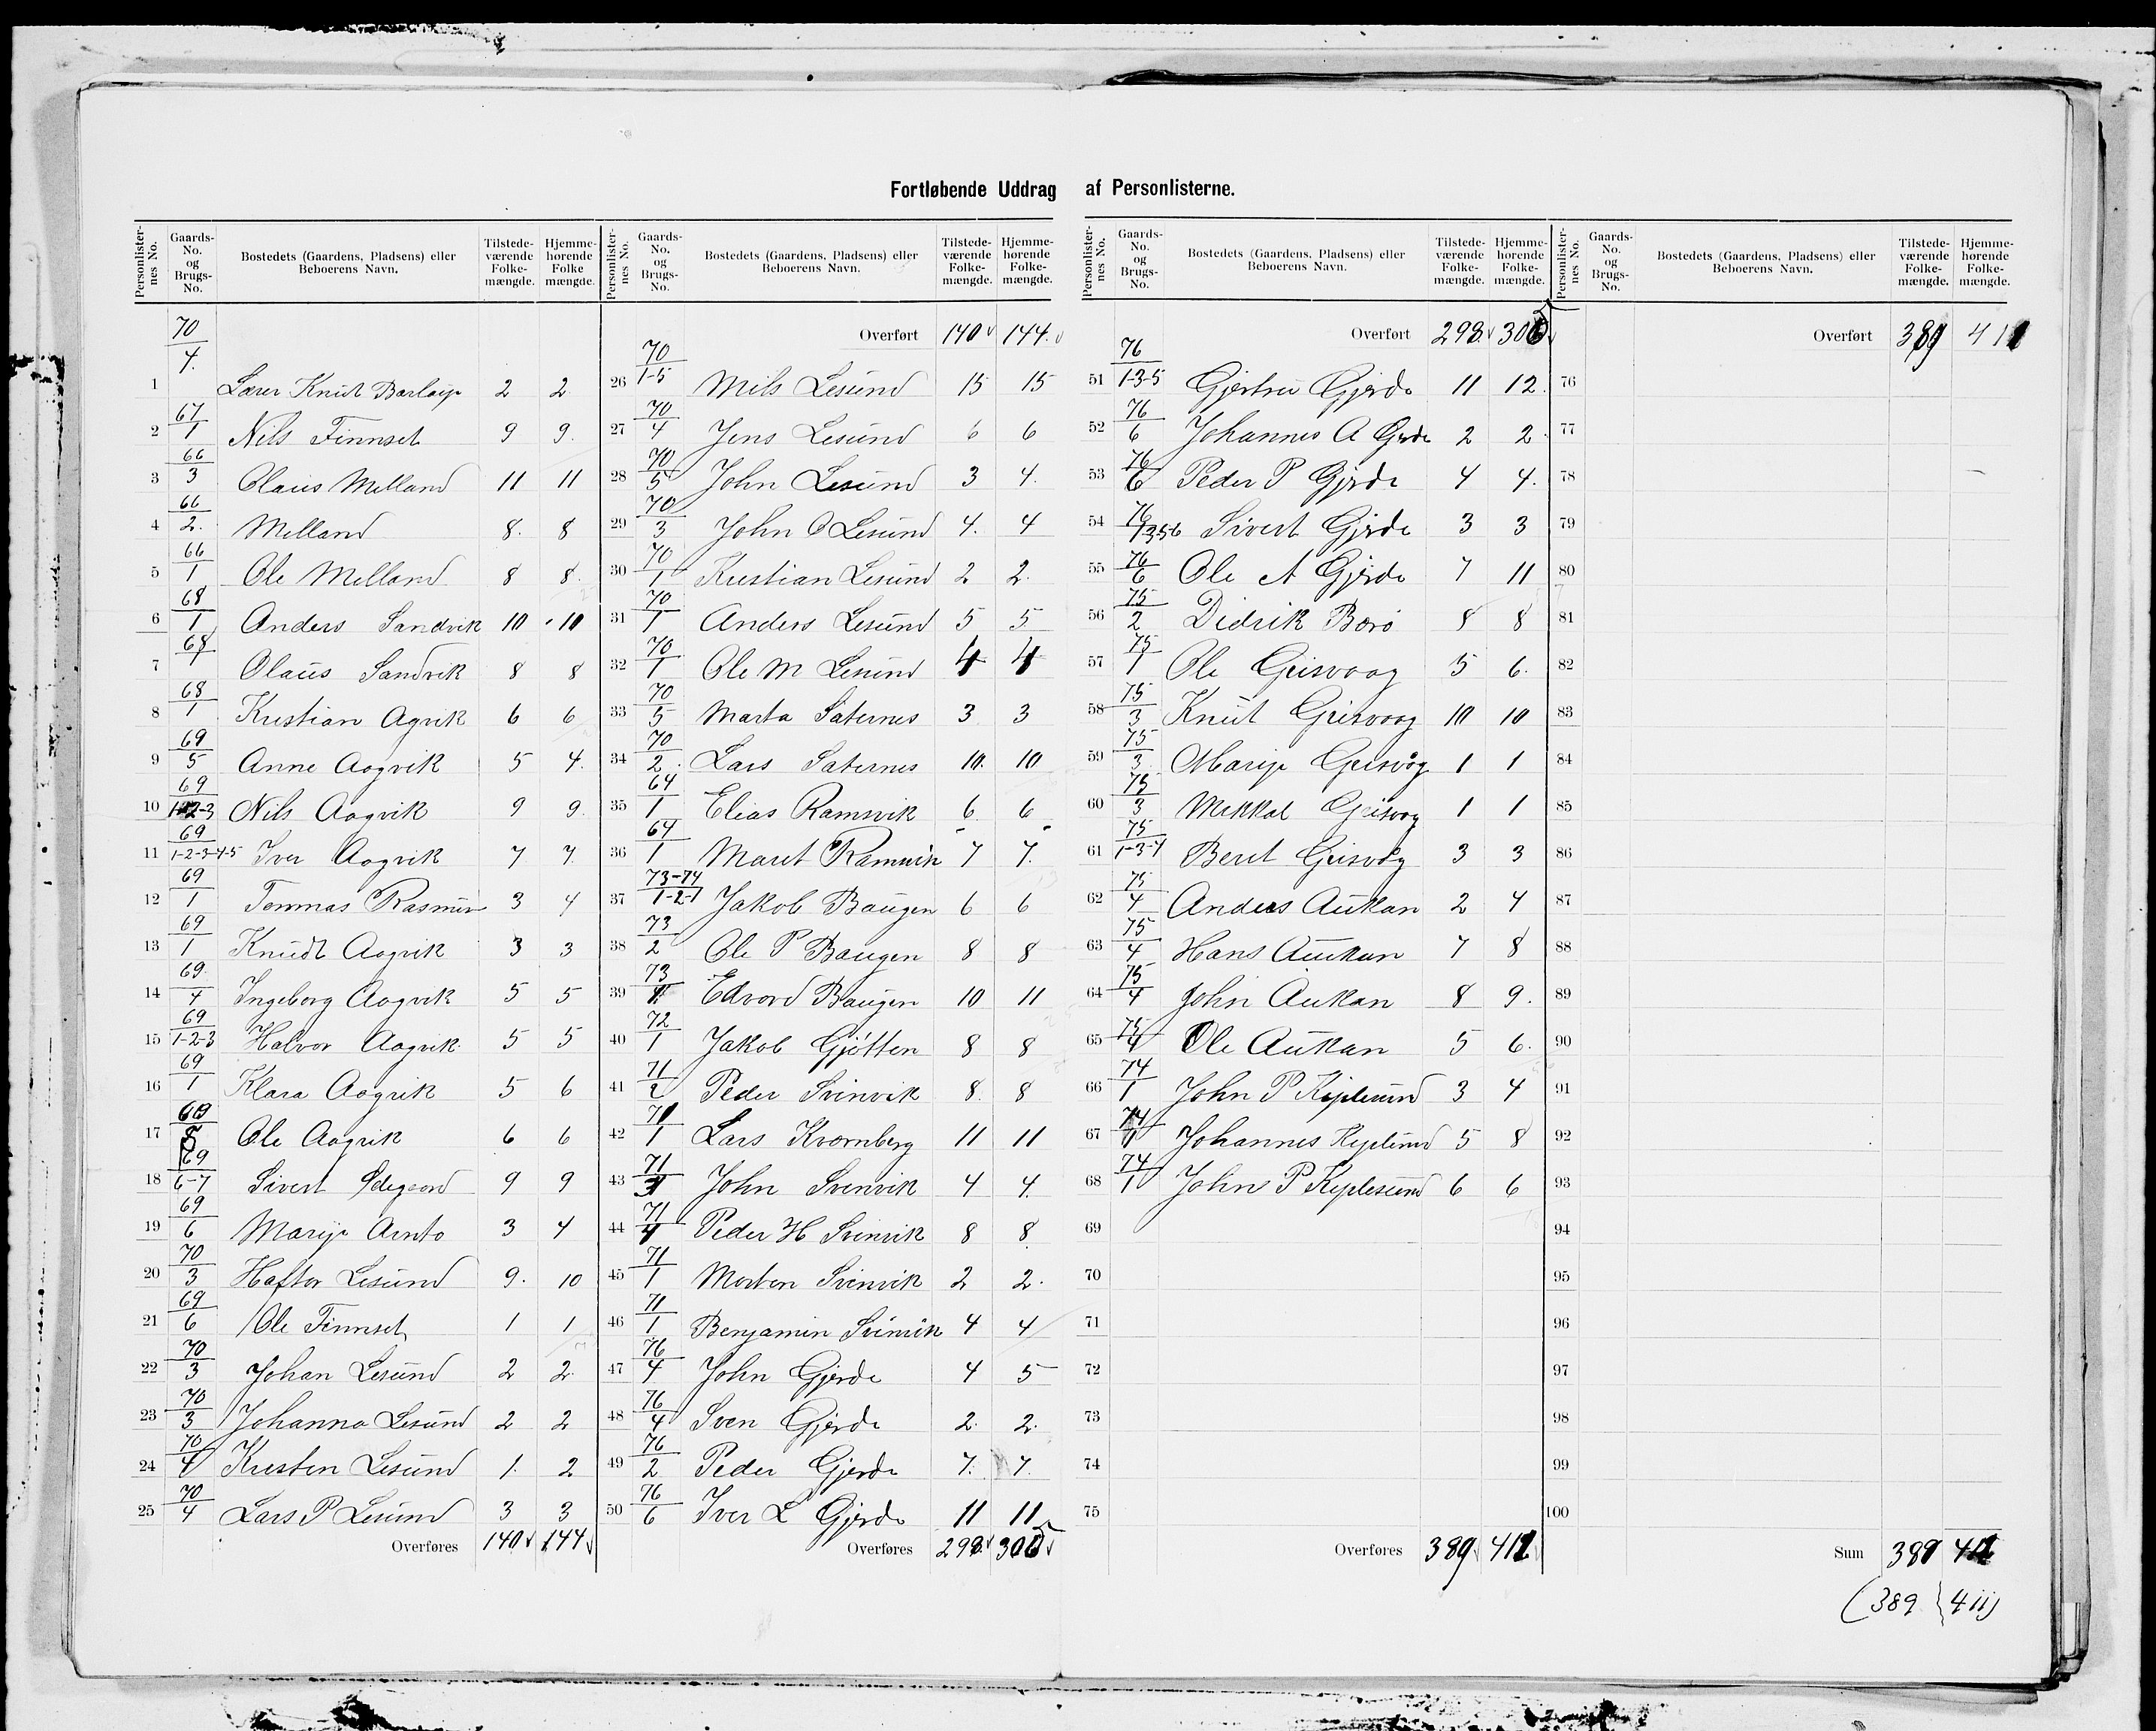 Fortløbende Uddrag af Personlisterne.
Personlister-nes No. Gaards-No. og Brugs-No. Bostedets (Gaardens, Pladsens) eller Beboerens Navn. Tilstede-værende Folke-mængde. Hjemme-hørende Folke mængde.
1 70/4. Lærer Knut 2 2
2 67/1 Nils Finnset 9 9.
3 66/3 Olaus Melland 11 11
4 66/2. Melland 8. 8
5 66/1 Ole Melland 8 8.
6 68/1 Anders Sandvik 10 10
7 68/1 Olaus Sandvik 8 8
8 68/1 Kristian Agvik 6 6
9 69/5 Anne Aagvik 5 4.
10 69/1-2-3 Nils Aagvik 9 9
11 69/1-2-3-4-5 Iver Aagvik 7 7.
12 69/1 Tommas Rasmus 3 4
13 69/1 Knudt Aagvik 3 3
14 69/4 Ingeborg Aagvik 5 5
15 69/1-2-3 Halvor Aagvik 5 5
16 69/1 Klara Aagvik 5 6
17 Ole Aagvik 6 6
18 69/6-7 Sivert Ødegaard 9 9
19 69/6 Marije 3 4
20 70/3 Haftor Lesund 9. 10
21 69/6 Ole Finnset 1 1
22 70/3 Johan Lesund 2 2
23 70/3 Johanna Lesund 2 2
24 70/4 Kristen Lesund 1. 2
25 70/4 Lars P Lesund 3 3
Overføres 140 144
Personlister-nes No. Gaards-No. og Brugs-No. Bostedets (Gaardens, Pladsens) eller Beboerens Navn. Tilstede-værende Folke-mængde. Hjemme-hørende Folke-mængde.
Overført 140 144.
26 70/1-5 Mils Lesund 15 15
27 70/4 Jens Lesund 6 6
28 70/5 John Lesund 3 4.
29 70/3 John O Lesund 4. 4
30 70/1 Kristian Lesund 2 2.
31 70/1 Anders Lesund 5 5
32 70/1 Ole M Lesund 4 4
33 70/5 Marta Saternes 3 3
34 70/2. Lars Saternes 10. 10
35 64/1 Elias Ramsvik 6 6
36 64/1 Marit Ramsvik 7 7.
37 73-74/1-2-1 Jakob Baugen 6 6
38 73/2 Ole P Baugen 8 8
39 73/1 Edvard Baugen 10 11
40 72/1 Jakob Gjøtten 8 8
41 71/2 Peder Svinvik 8. 8
42 71/1 Lars Kvornberg 11 11
43 71/3 John Svinvik 4 4.
44 71/4 Peder H Svinvik 8 8
45 71/1 Morten Svinvik 2 2.
46 71/1 Benjamin Svinvik 4 4
47 76/4 John Gjerde 4 5
48 76/4 Sven Gjerde 2. 2.
49 76/2 Peder Gjerde 7. 7.
50 76/6 Iver L Gjerde 11 11
Overføres 298.
Personlister-nes No. Gaards-No. og Brugs-No. Bostedets (Gaardens, Pladsens) eller Beboerens Navn. Tilstede-værende Folke-mængde. Hjemme-hørende Folke-mængde.
Overført 298.
51 76/1-3-5 Gjertru Gjerde 11 12.
52 76/6 Johannes A Gjerde 2 2.
53 76/6 Peder P Gjerde 4 4.
54 76/1356 Sivert Gjerde 3 3
55 76/6 Ole A Gjerde 7 11
56 75/2 Didrik Borø 8 8
57 75/1 Ole Geisvaag 5 6.
58 75/3 Knut Geisvaag 10 10
59 75/3 Marije Geisvåg 1 1
60 75/3 Mikkal Geisvåg 1 1
61 75/1-3-4 Berit Geisvåg 3 3
62 75/4 Anders Aukan 2 4
63 75/4 Hans Aukan 7 8
64 75/4 John Aukan 8 9.
65 75/4 Ole Aukan 5 6.
66 74/1 John P Kjplesund 3 4
67 74/1 Johannes Kjplesund 5 8
68 74/1 John P Kjplesund 6 6
69
70
71
72
73
74
75
Overføres 389
Personlister-nes No. Gaards-No. og Brugs-No. Bostedets (Gaardens, Pladsens) eller Beboerens Navn. Tilstede-værende Folke-mængde. Hjemme-hørende Folke-mængde.
Overført 389 411
76
77
78
79
80
81
82
83
84
85
86
87
88
89
90
91
92
93
94
95
96
97
98
99
100
Sum 389 411
(389 411)